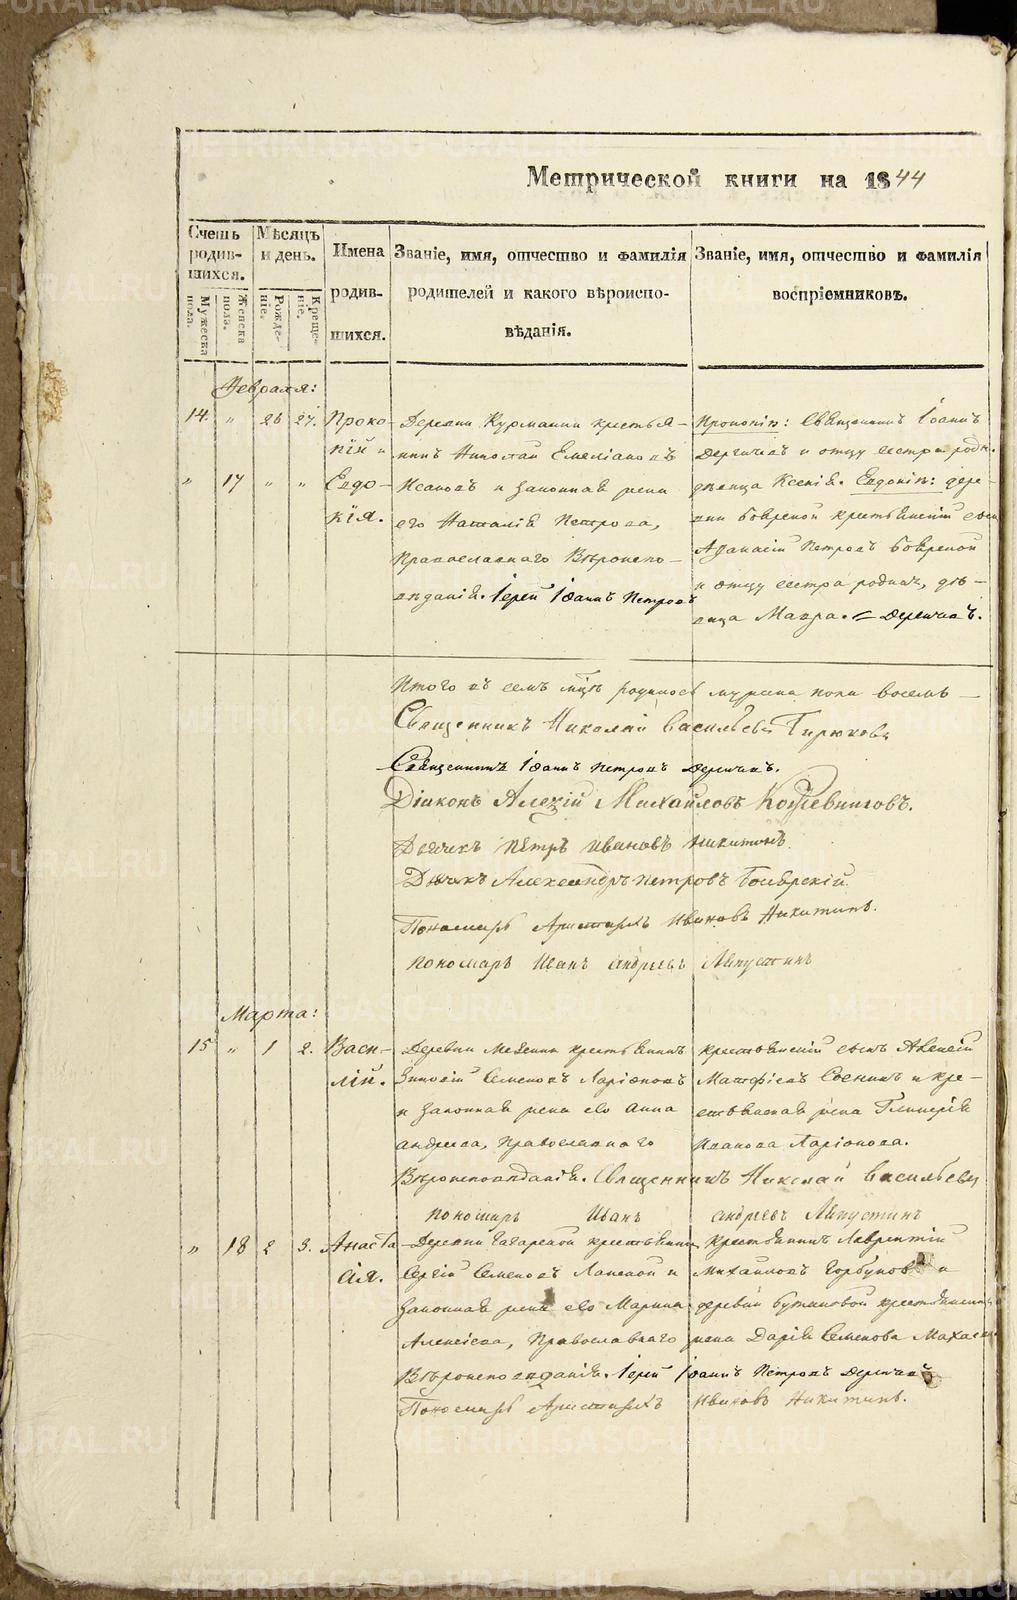 Метрической книги на 1844
Счетъ родившихся.
Мѣсяцъ и день.
Имена родившихся.
Званіе, имя, отчество и фамилія родителей и какого вѣроисповѣданія.
Званіе, имя, отчество и фамилія воспріемниковъ.
Мужеска пола.
Женска пола.
Рожденіе.
Крещеніе.
Февраля:
14. " 26 27. Проко-
пій и
" 17 " " Евдо-
кія.
Деревни Курманки крестья-
нинъ Николай Емеліановъ
Исаковъ и законная жена
его Наталія Петрова,
Православнаго Вѣроиспо-
вѣданія. Іерей Іоаннъ Петровъ
Прокопія: Священникъ Іоаннъ
и отцу сестра родн.
дѣвица Ксенія. Евдокіи: дере-
вни Боярской крестьянскій сынъ
Аѳанасій Петровъ Боярской
и отцу сестра родная, дѣ-
вица Мавра.
Итого въ семъ мцѣ родилось мужеска пола восемь
Священникъ Николай Васильевъ Бирюковъ
Священникъ Іоаннъ Петровъ
Діаконъ Алексій Михайловъ Кожевниковъ.
Дьячекъ Петръ Ивановъ Никитинъ.
Дьячекъ Александръ Петровъ Боярскій.
Пономарь Аристархъ Ивановъ Никитинъ.
Пономарь Иванъ Андреевъ Ляпустинъ
Марта:
15 " 1 2. Васи-
лій.
Деревни Мезенки крестьянинъ
Зиновій Семеновъ Ларіоновъ
и законная жена его Анна
Андреева, Православнаго
Вѣроисповѣданія. Священникъ Николай Васильевъ
Пономарь Иванъ Андреевъ Ляпустинъ
крестьянскій сынъ Алексій
Матфіевъ и кре-
стьянская жена Гликерія
Иванова Ларіонова.
" 18 2 3. Анаста
сія.
Деревни Гагарской крестьянинъ
Сергій Семеновъ Ланской и
законная жена его Марина
Алексіева, Православнаго
Вѣроисповѣданія. Іерей Іоаннъ Петровъ
Пономарь Аристархъ Ивановъ Никитинъ.
крестьянинъ Лаврентій
Михайловъ Горбуновъ и
деревни крестьянская
жена Дарія Семенова
METRIKI.GASO-URAL.RU